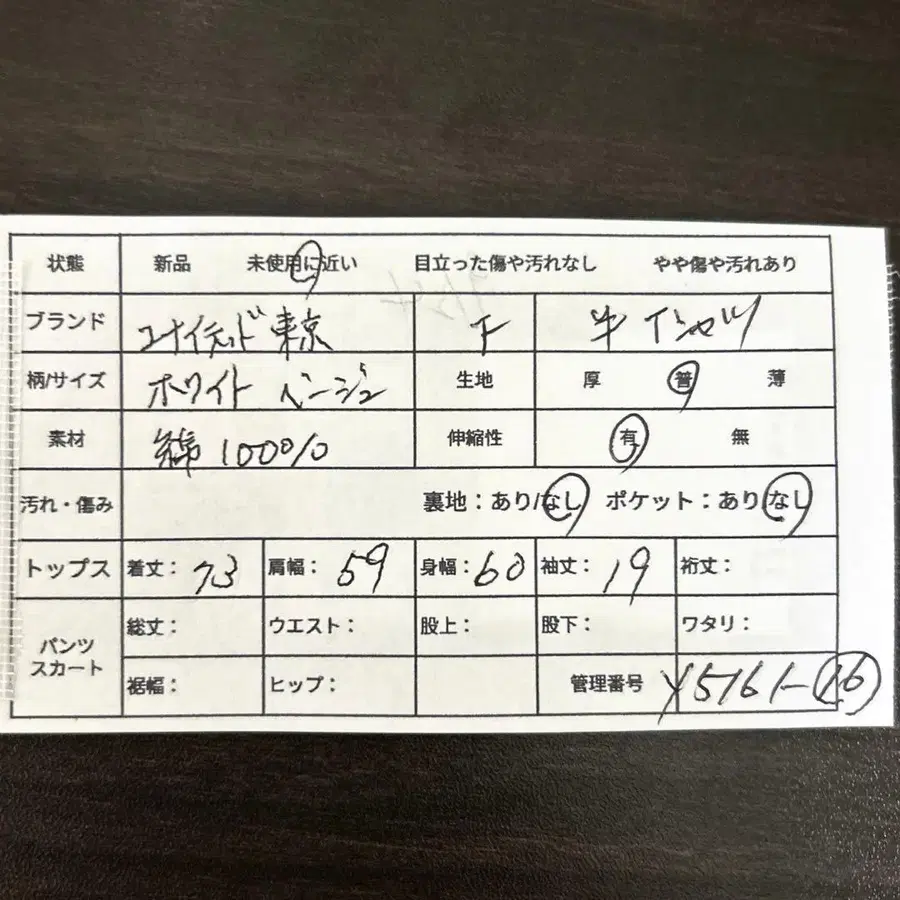 状態 新品 未使用に近い 目立った傷や汚れなし やや傷や汚れあり
ブランド ユナイテッド東京 下 半Tシャツ
柄/サイズ ホワイト ベージュ 生地 厚 普 薄
素材 綿100% 伸縮性 有 無
汚れ・傷み 裏地:あり/なし ポケット:あり なし
トップス 着丈: 73 肩幅: 59 身幅: 60 袖丈: 19 裄丈:
パンツ スカート 総丈: ウエスト: 股上: 股下: ワタリ:
裾幅: ヒップ: 管理番号 Y5161-16